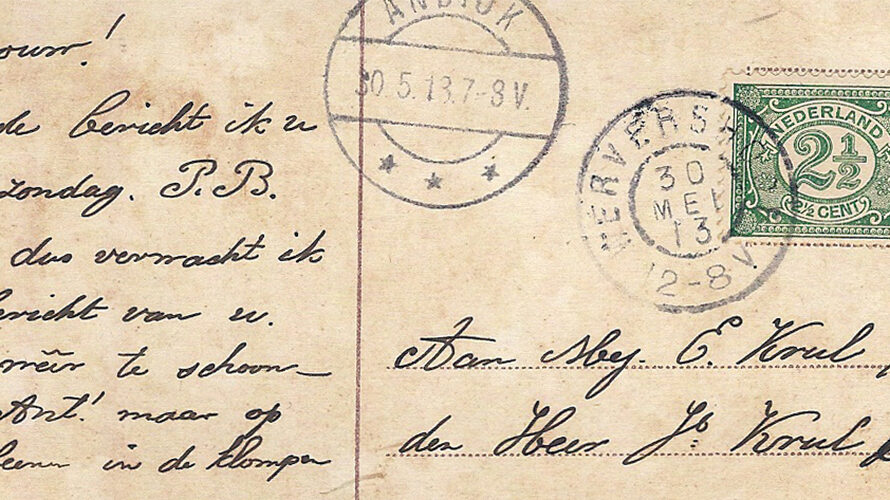 ouw!
de bericht ik u
zondag. P.B.
dus verwacht ik
bericht van u.
te schoon-
Ant! maar op
in de klompen
ANDIJK
30.5.13.7-8V.
HERVERSH
30
MEI
13
12-8V
NEDERLAND
2½
2½ CENT
Aan Mej. E. Krul
den Heer Jb Krul